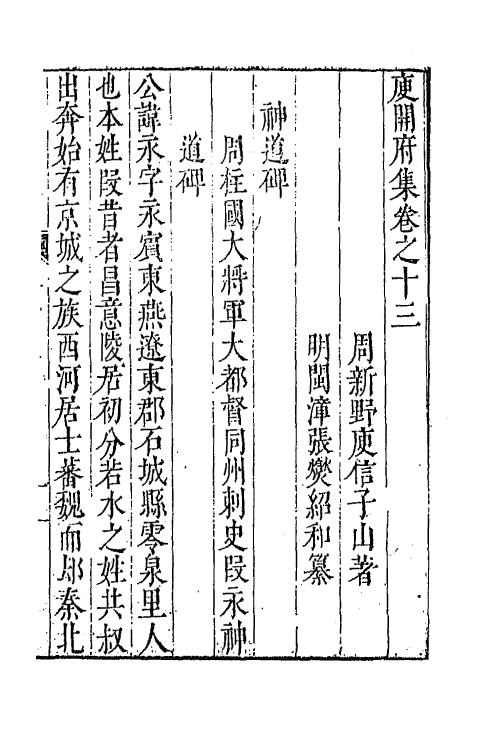 庾開府集卷之十三
周新野庾信子山著
明閩漳張燮紹和纂
神道碑
周柱國大將軍大都督同州刺史段永神
道碑
公諱永字永賓東燕遼東郡石城縣零泉里人
也本姓段昔者昌意陵居初分若水之姓共叔
出奔始有京城之族西河居士蕃魏而郄秦北